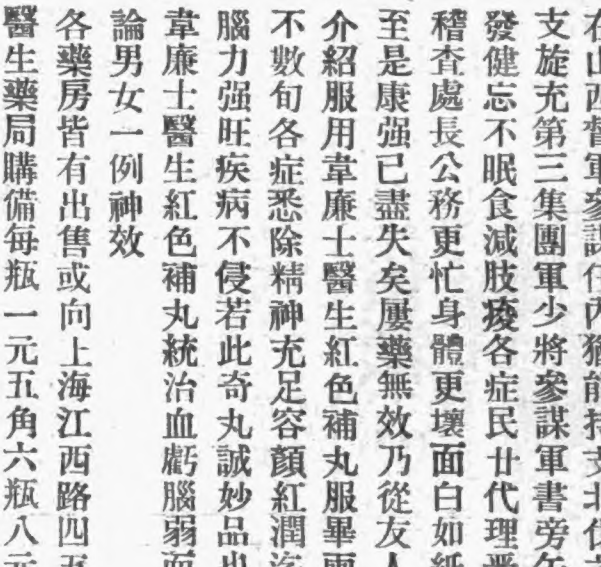 在山西督軍參謀任內猶能持支北伐
支旋充第三集團軍少將參謀軍書旁午
發健忘不眠食減肢痠各症民廿代理
稽查處長公務更忙身體更壞面白如紙
至是康强已盡失矣屢藥無效乃從友人
介紹服用韋廉士醫生紅色補丸服畢兩
不數旬各症悉除精神充足容顏紅潤
腦力强旺疾病不侵若此奇丸誠妙品也
韋廉士醫生紅色補丸統治血虧腦弱
論男女一例神效
各藥房皆有出售或向上海江西路四五
醫生藥局購備每瓶一元五角六瓶八元